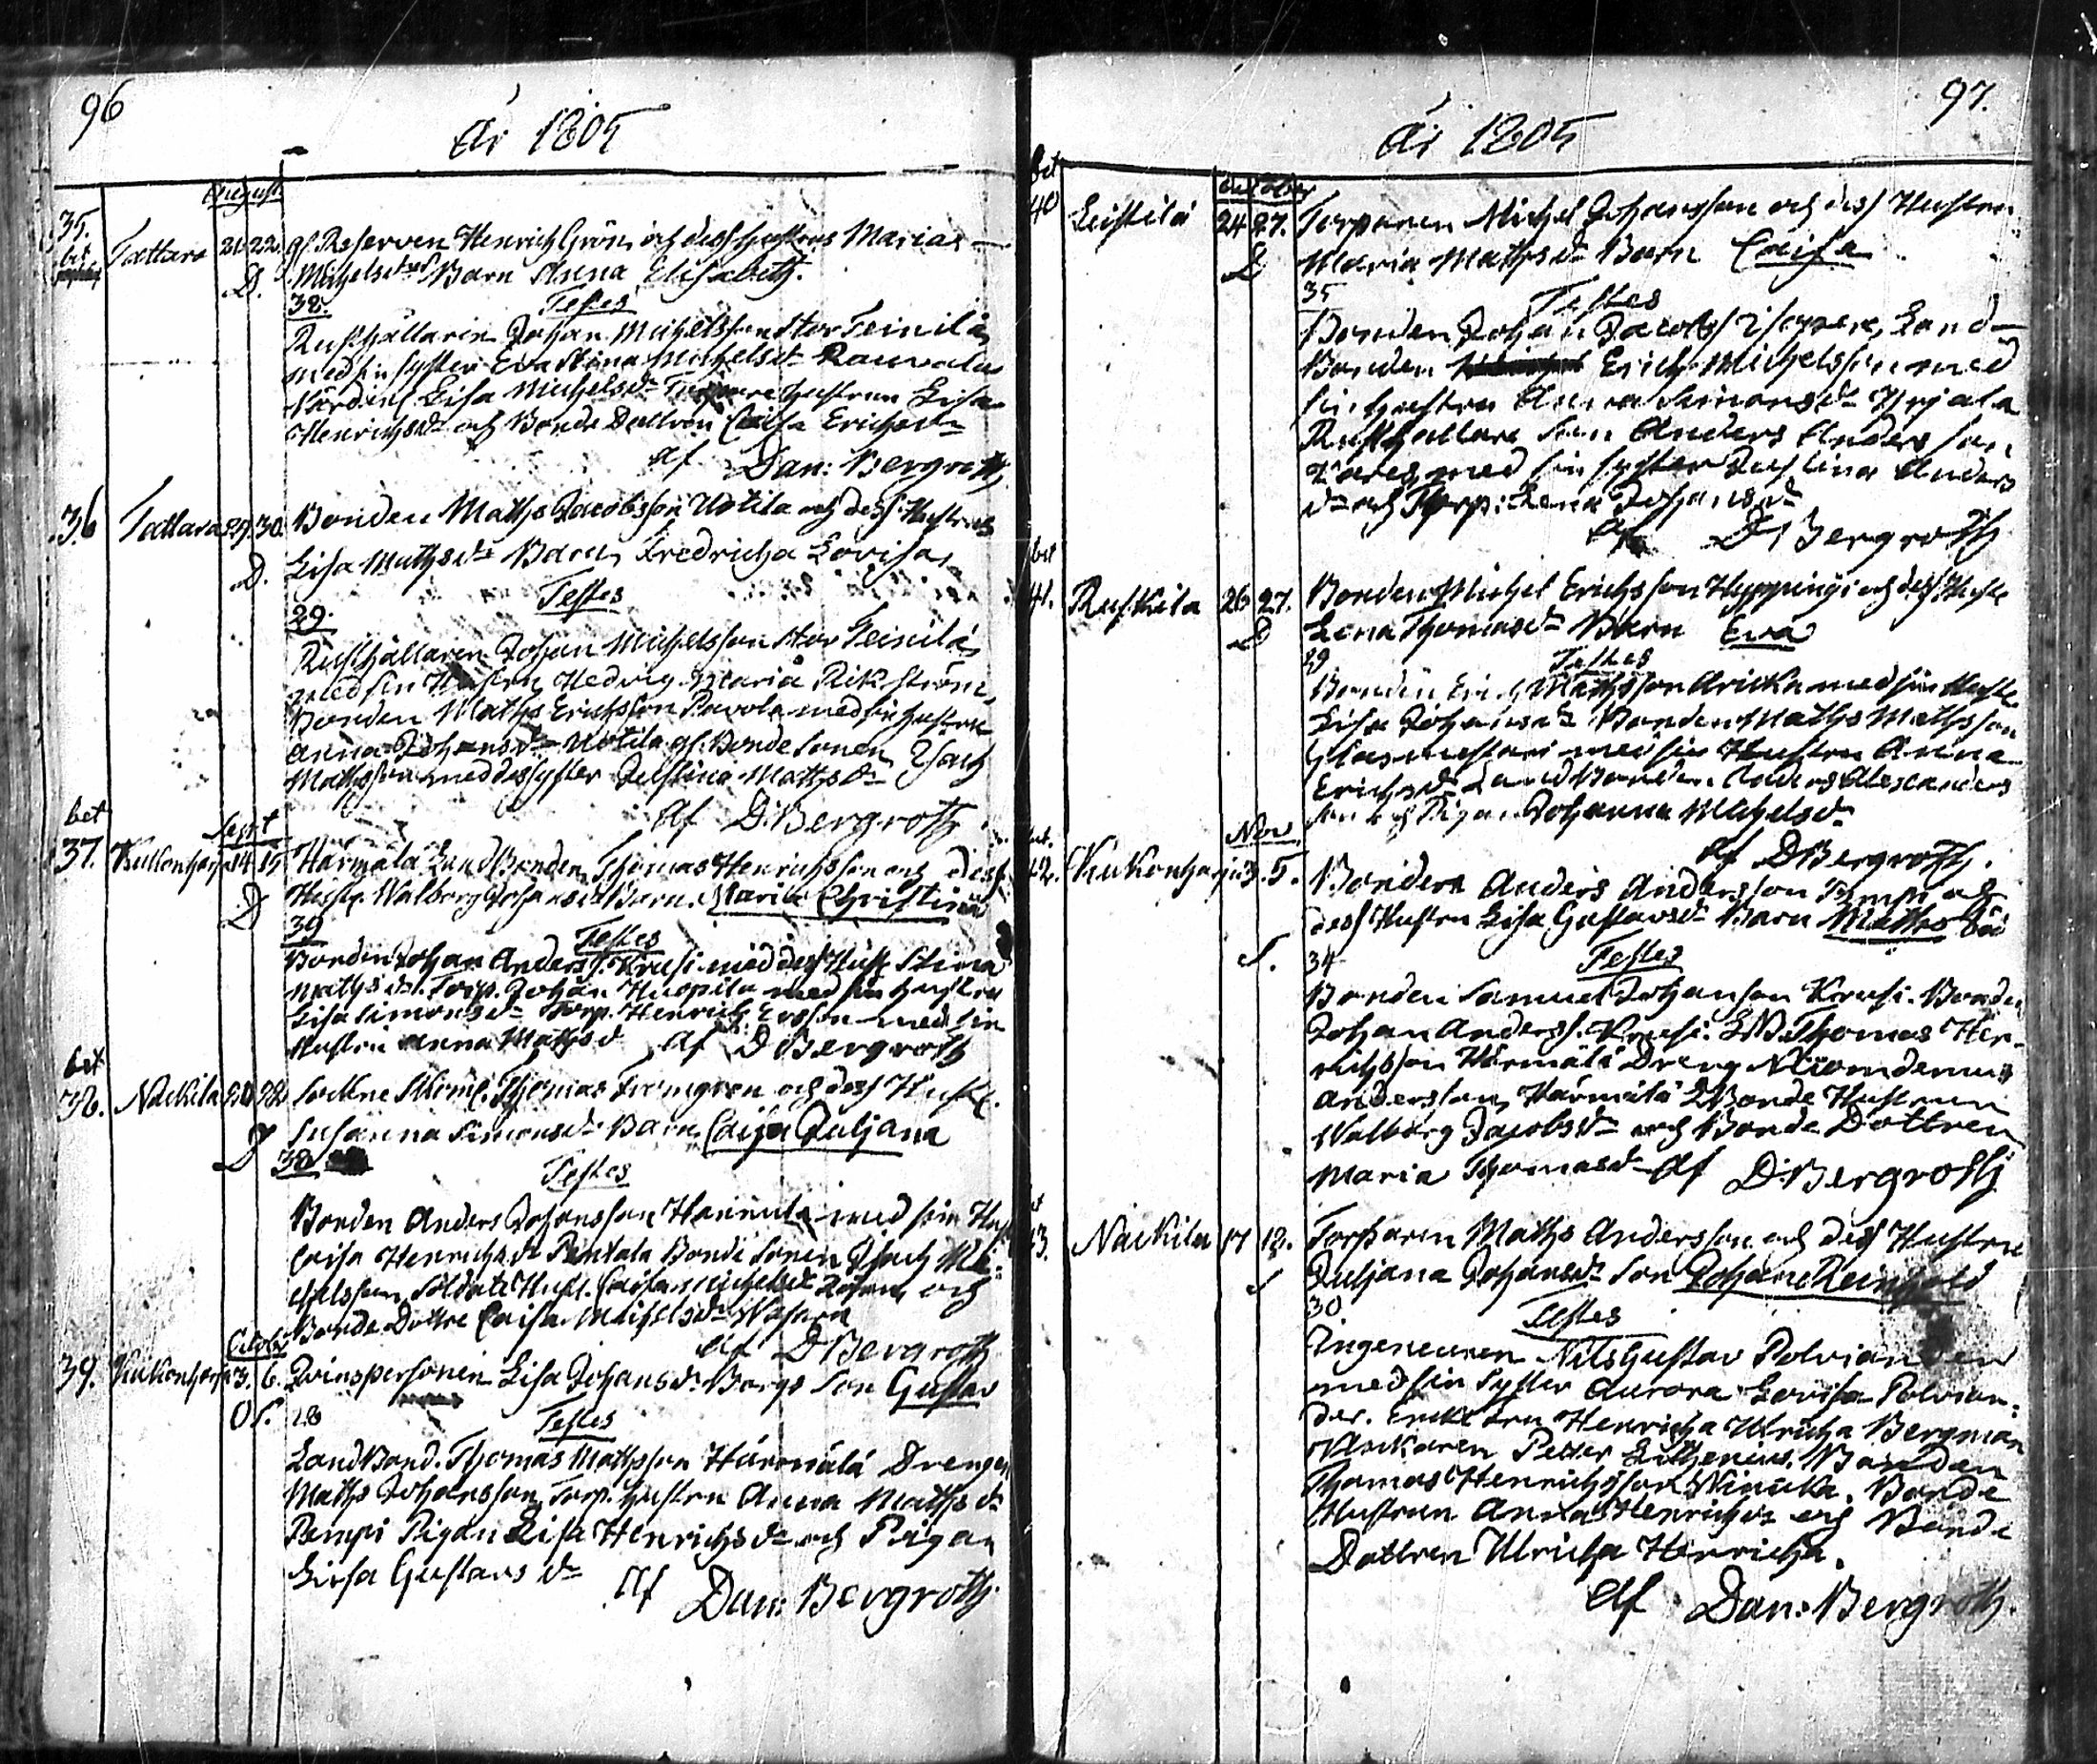 96
År 1805
August
35. bet Tattara 21 22. gl. Reserven Henrich Grön och dess Hustrus Marias
D. Michelsdr Barn Anna Elisabeth.
38. Testes
Rusthållaren Johan Michelsson Stor Teinilä
med sin syster Eva Stina Michelsdr Rauvala
Värdin. Lisa Michelsdr Hustrun Lisa
Henrichsdr och Bonde Dottren Caisa Erichsdr
af Dan: Bergroth
36 Tattara 29. 30. Bonden Maths Jacobsson Uotila och dess Hustrus
D. Lisa Mathsdr Barn Fredricha Lovisa
29. Testes
Rusthållaren Johan Michelsson Stor Teinilä
med sin Hustru Hedvig Maria Rikström,
Bonden Maths Erichsson Pavola med sin hustru
Anna Johansdr Uotila gl. Bonde Sonen Isach
Mathsson med dess syster Justina Mathsdr
af D. Bergroth
bet Sept
37. Kukonharja 14 15 Härmälä LandBonden Thomas Henrichsson och dess
D Hustr. Walborg Johansdr Barn. Maria Christina
39 Testes
Bonden Johan Anderss. Krusi med dess Hust Stina
Mathsdr. Torp. Johan Huopila med sin hustru
Lisa Simonsdr Torp. Henrich Ersson med sin
Hustru Anna Mathsd af D Bergroth
bet
38. Nackila 20 22 Sockne Skom. Thomas Framgren och dess Hust.
D Susanna Simonsdr Barn Caisa Juljana
38 Testes
Bonden Anders Johansson Hannula med sin Hust
Caisa Henrichsdr Penkala Bonde Sonen Isach Mi-
chelsson Soldate Hust. Caisa Michelsdr och
Bonde Dottre Caisa Michelsdr
af D Bergroth
October
39. Kukonharja 3. 6. Qvinspersonen Lisa Johansdr Borgs Son Gustav
OS. 28 Testes
LandBond. Thomas Mathsson Härmälä Drengen
Maths Johansson Torp. hustru Anna Mathsdr
Pempi Pigan Lisa Henrichsdr och Pigan
Lisa Gustavsdr af Dan: Bergroth
97.
År 1805
bet October
40 Leistilä 24 27. Torparen Michel Johansson och dess Hustru
D Maria Mathsdr Barn Caisa
35 Testes
Bonden Johan Jacobss Land-
Bonden Erich Michelsson med
sin hustru Anna Simonsdr Yrjälä
Rusthållare Son Anders Andersson
med sin syster Justina Anders
dr och Torp: Lena Johansdr
af D Bergroth
bet
41. Ruskila 26 27. Bonden Michel Erichsson Hyppingi och dess Hustr
D Lena Thomasdr Barn Eva
29 Testes
Bonden Erich Mathsson Arikka med sin Hustr
Lisa Johansdr Bonden Maths Mathsson
Glasmestari med sin Hustru Anna
Erichsdr LandBonden Anders Alexanders
son och Pigan Johanna Michelsdr
af D Bergroth.
bet. Nov
42. Kukonharja 3. 5. Bonden Anders Andersson Pempi och
dess Hustru Lisa Gustavsdr Barn Maths
S. 34 Testes
Bonden Samuel Johansson Krusi. Bonden
Johan Anderss. Krusi. LB. Thomas Hen-
richsson Härmälä Dreng Nicomdemus
Andersson Härmälä LBonde Hustrun
Walborg Jacobsdr och Bonde Dottren
Maria Thomasdr af D: Bergroth
43. Nackila 17 18. Torparen Maths Andersson och dess Hustru
S Juljana Johansdr Son Johan Reinhold
30 Testes
Ingeneuren Nils Gustav Polviander
med sin Syster Aurora Lovisa Polvian-
der. Enckefru Henricha Ulricha Bergman
Petter Lithenius. Bonden
Thomas Henrichsson Winicka. Bonde
Hustrun Anna Henrichsdr och Bonde
Dottren Ulricha Henricha.
af Dan: Bergroth.